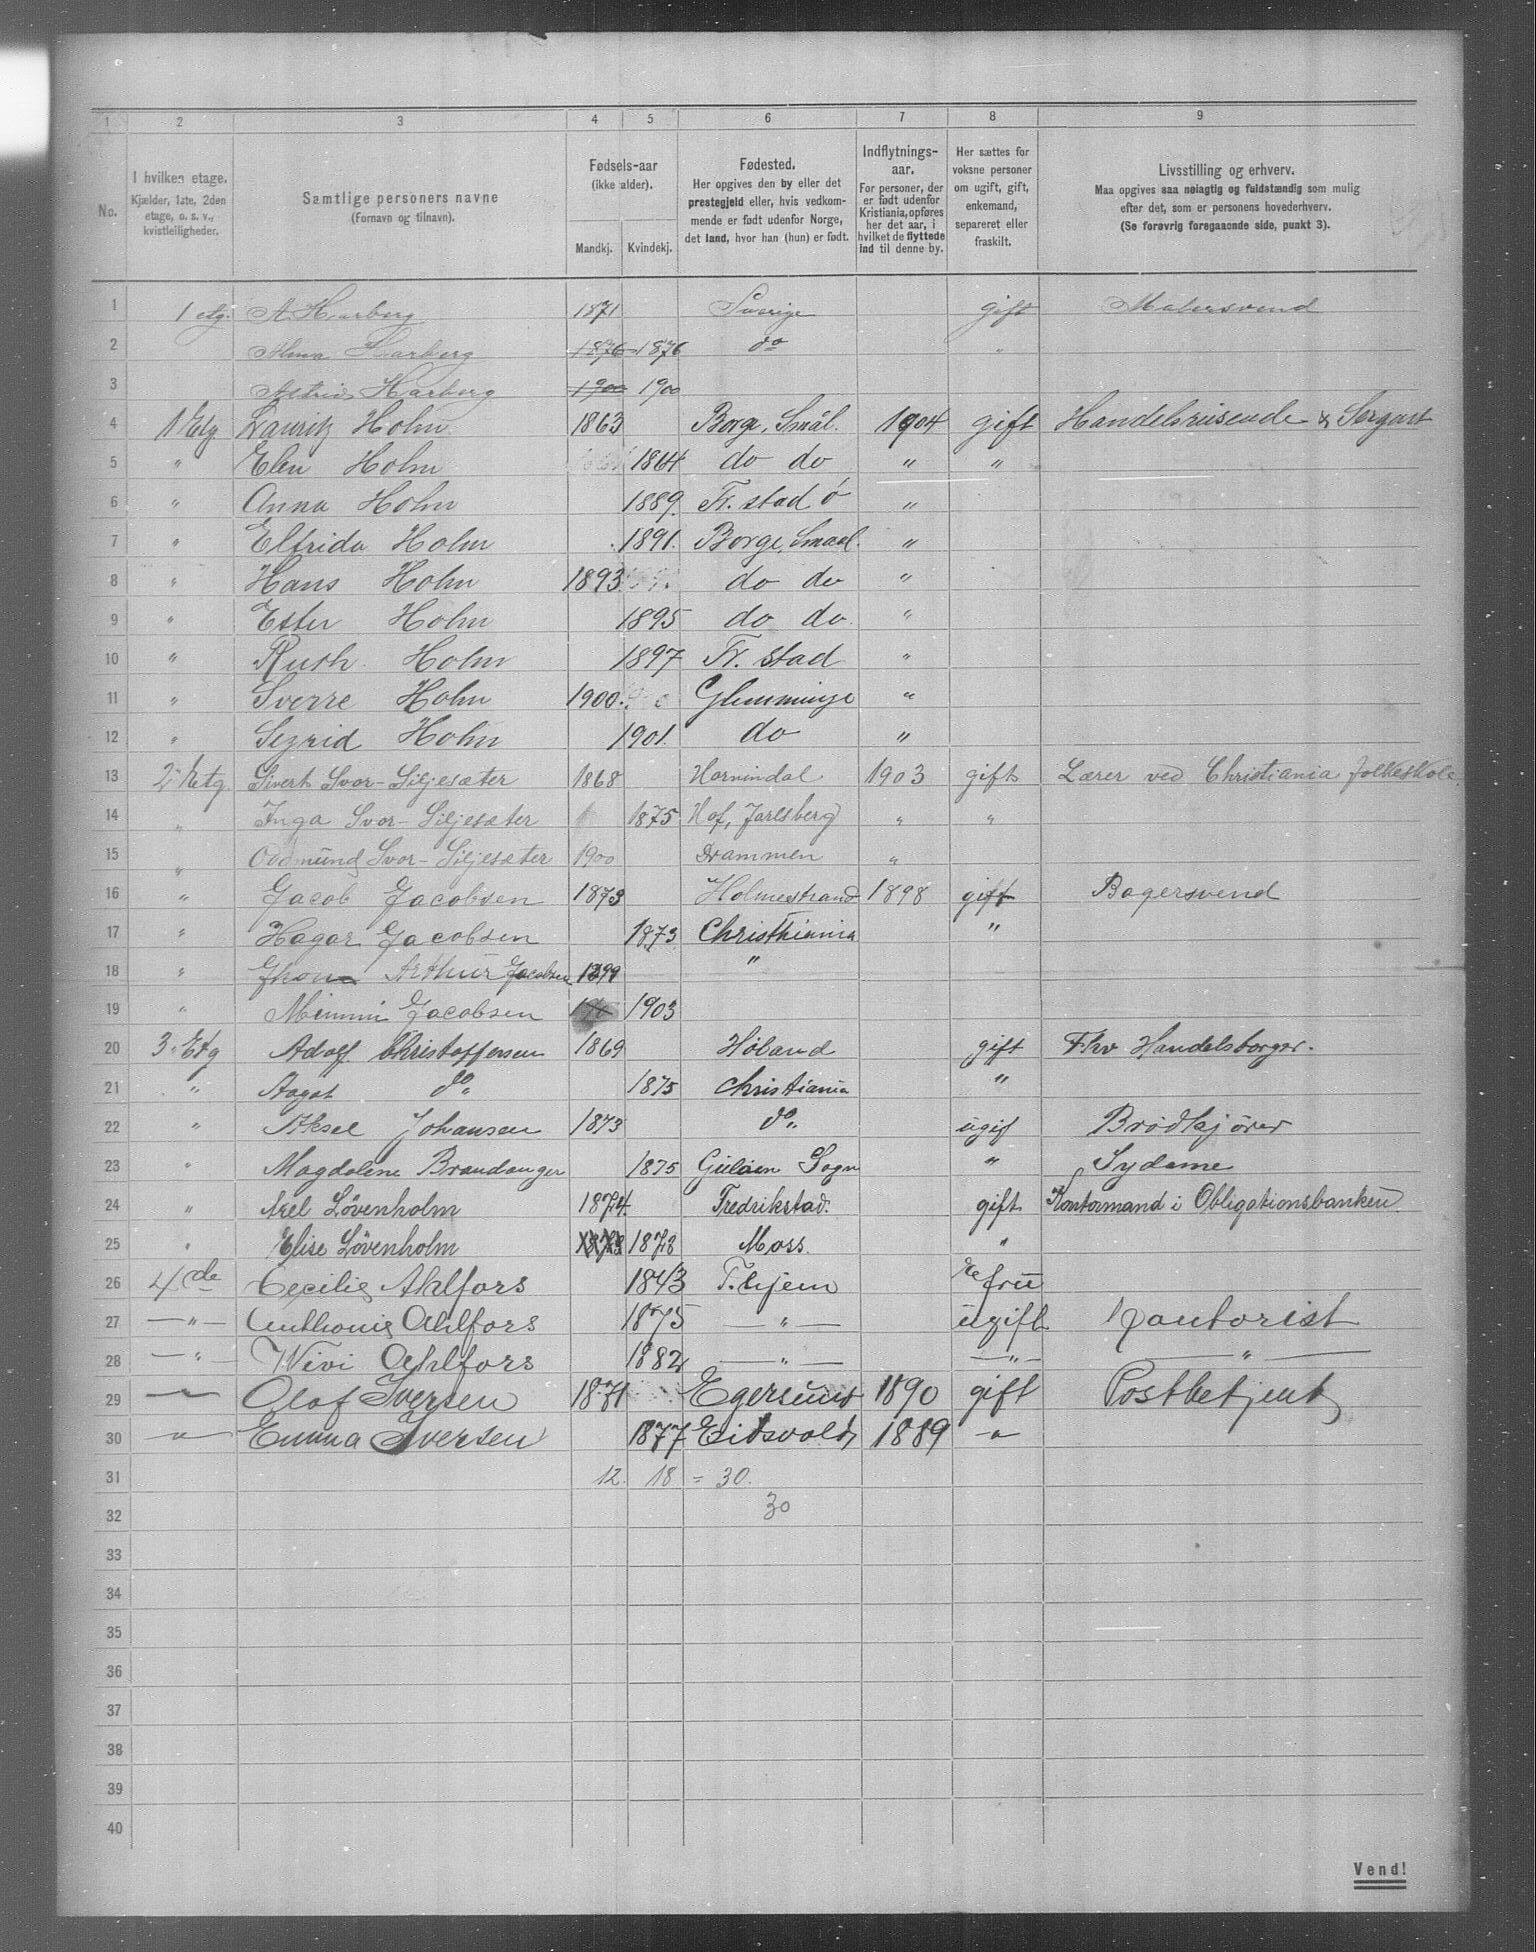 1 2 3 4 5 6 7 8 9
No.
I hvilken etage.
Kjælder, 1ste, 2den
etage, o. s. v.,
kvistleiligheder.
Samtlige personers navne
(Fornavn og tilnavn).
Fødsels-aar
(ikke alder).
Mandkj. Kvindekj.
Fødested.
Her opgives den by eller det
prestegjeld eller, hvis vedkom-
mende er født udenfor Norge,
det land, hvor han (hun) er født.
Indflytnings-
aar.
For personer, der
er født udenfor
Kristiania, opføres
her det aar, i
hvilket de flyttede
ind til denne by.
Her sættes for
voksne personer
om ugift, gift,
enkemand,
separeret eller
fraskilt.
Livsstilling og erhverv.
Maa opgives saa nøiagtig og fuldstændig som mulig
efter det, som er personens hovederhverv.
(Se forøvrig foregaaende side, punkt 3).
1 1 etg. A. Harberg 1871 Sverige gift Malersvend
2 Alma Harberg 1876 1876 do "
3 Astrid Harberg 1900 1900
4 1 Etg Lauritz Holm 1863 Borge, Smål. 1904 gift Handelsreisende & Sergant
5 " Elen Holm 1864 do do " "
6 " Anna Holm 1889. Fr. stad "
7 " Elfrida Holm 1891. Borge, Smaal. "
8 " Hans Holm 1893 do do "
9 " Ester Holm 1895 do do. "
10 " Ruth Holm 1897 Fr. stad "
11 " Sverre Holm 1900. Glemminge "
12 " Sigrid Holm 1901. do "
13 2 Etg. Sivert Svor-Siljesæter 1868 Hornindal 1903 gift Lærer ved Christiania folkeskole.
14 " Inga Svor-Siljesæter 1875 Hof, Jarlsberg " "
15 " Oddmund Svor-Siljesæter 1900 Drammen "
16 " Jacob Jacobsen 1873 Holmestrand 1898 gift Bagersvend
17 " Hagar Jacobsen 1873 Christhiania "
18 " Arthur Jacobsen 1899 "
19 " Mimmi Jacobsen 1903
20 3. Etg Adolf Christoffersen 1869 Høland gift Fhv Handelsborger.
21 " Aagot do " 1875 Christiania "
22 " Aksel Johansen 1873 do " ugif Brødkjører
23 " Magdalene Brandanger 1875 Gulen Sogn " Sydame
24 " Axel Lövenholm 1874. Fredrikstad. gift Kontormand i Obligationsbanken.
25 " Elise Lövenholm 1873 Moss. "
26 4de Cecilie Ahlfors 1843 T. hjem frü
27 — " — Anthonie Ahlfors 1875 — " — ugift Kontorist
28 — " Wivi Ahlfors 1882 — " — — " — — " —
29 — " Olaf Iversen 1871 Egersund 1890 gift Postbetjent
30 — " — Emma Iversen 1877 Eidsvold 1889 — " —
31 12. 18 = 30.
32 30
33
34
35
36
37
38
39
40
Vend!